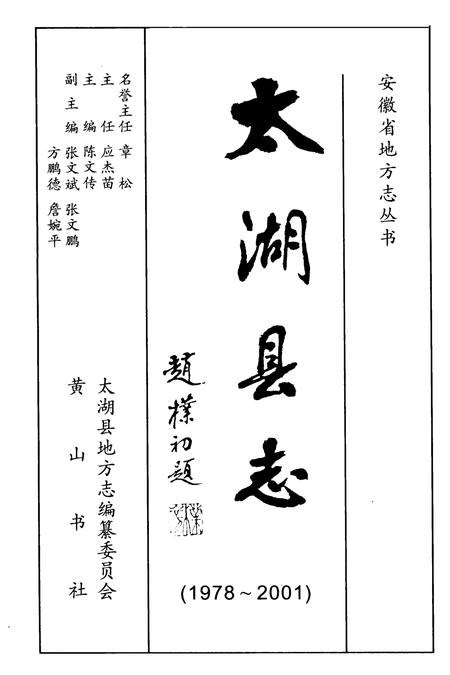 安徽省地方志丛书
太湖县志
(1978~2001)
趙樸初題
名誉主任 章松
主任 应杰苗
主编 陈文传
副主编 张文斌 张文鹏
方鹏德 詹婉平
太湖县地方志编纂委员会
黄山书社